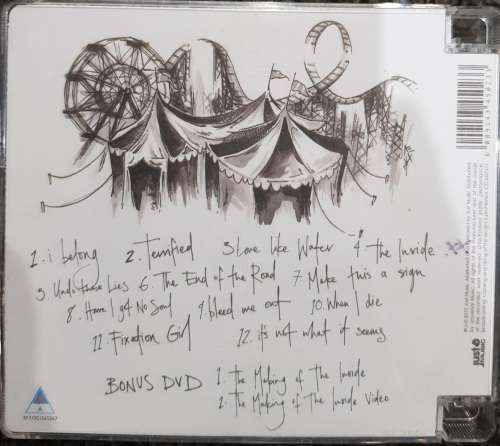 1. i belong 2. Terrified 3. Love like Water 4. The Inside
5. Under these Lies 6. The End of the Road 7. Make this a sign
8. Have I got No Soul 9. bleed me out 10. When I die
11. Fixation Girl 12. it's not what it seems
BONUS DVD 1. The Making of The Inside
2. The Making of The Inside Video
just